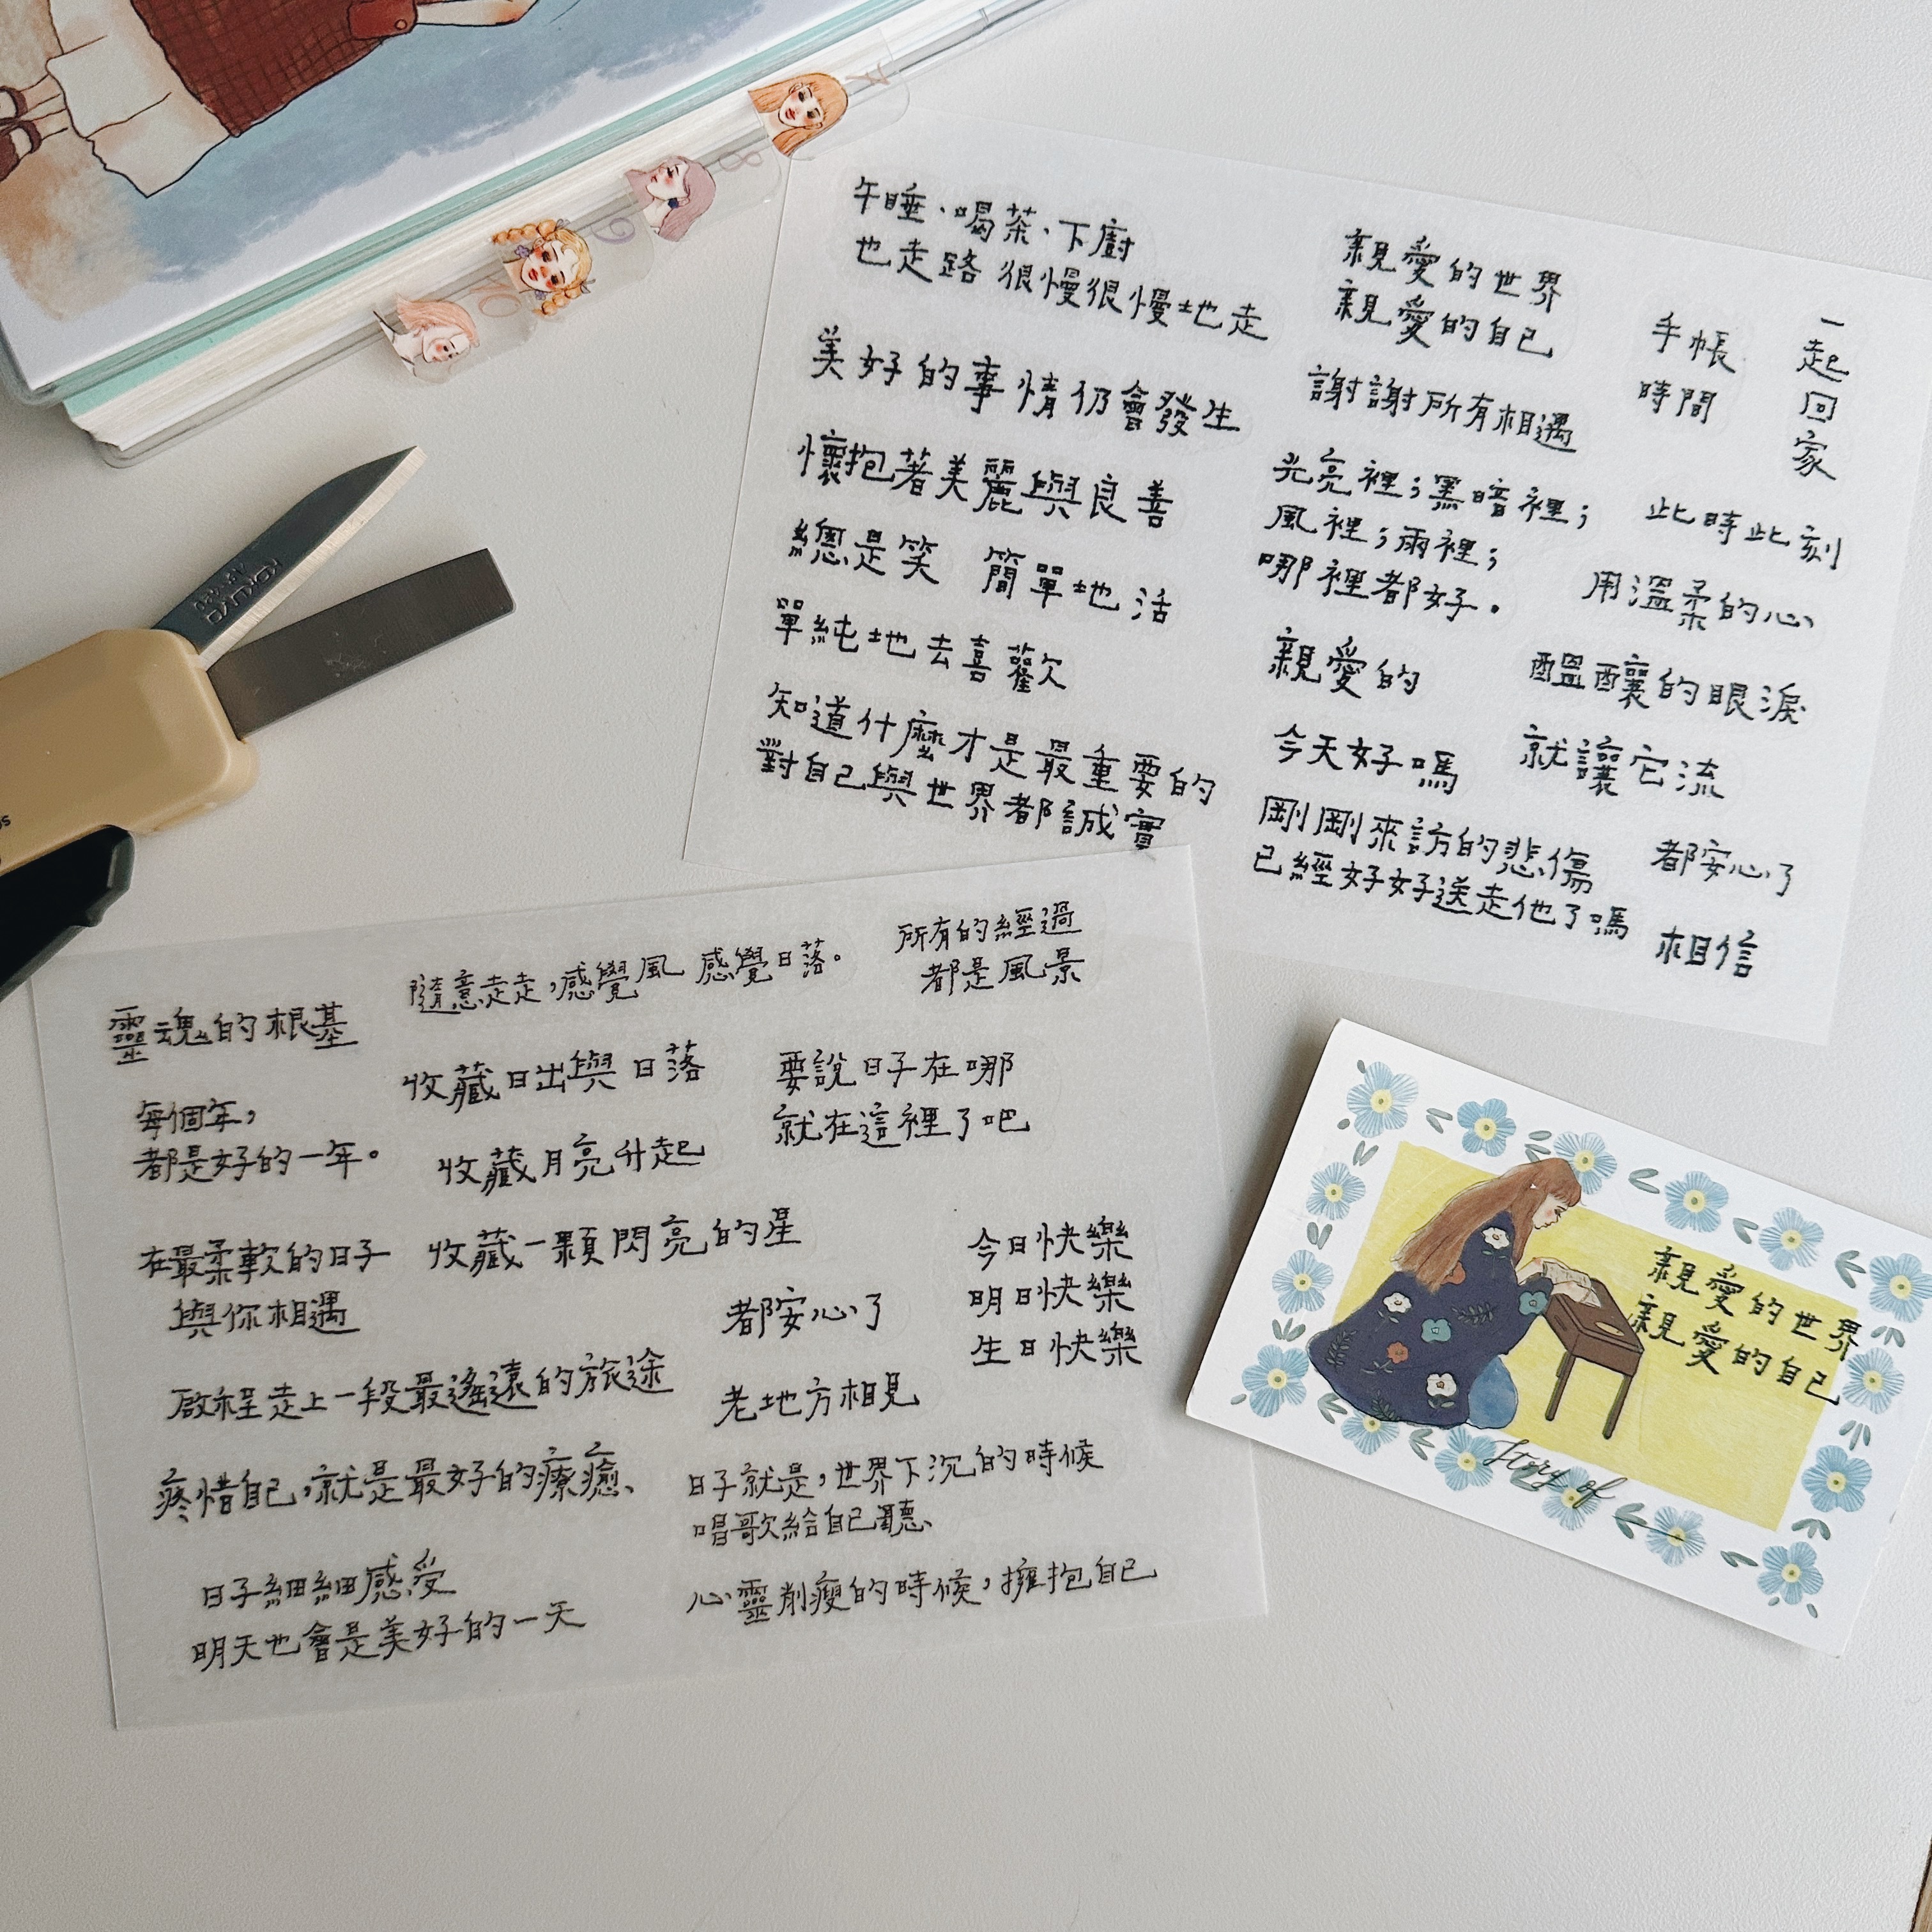 7
8
9
10
午睡、喝茶、下廚
也走路 很慢很慢地走
美好的事情仍會發生
懷抱著美麗與良善
總是笑 簡單地活
單純地去喜歡
知道什麼才是最重要的
對自己與世界都誠實
親愛的世界
親愛的自己
謝謝所有相遇
光亮裡；黑暗裡；
風裡；雨裡；
哪裡都好。
親愛的
今天好嗎
剛剛來訪的悲傷
已經好好送走他了嗎
手帳
時間
一起回家
此時此刻
用溫柔的心
醞釀的眼淚
就讓它流
都安心了
相信
靈魂的根基
每個年，
都是好的一年。
在最柔軟的日子
與你相遇
啟程走上一段最遙遠的旅途
疼惜自己，就是最好的療癒、
日子細細感受
明天也會是美好的一天
隨意走走，感覺風 感覺日落。
收藏日出與日落
收藏月亮升起
收藏一顆閃亮的星
所有的經過
都是風景
要說日子在哪
就在這裡了吧
都安心了
老地方相見
今日快樂
明日快樂
生日快樂
日子就是，世界下沉的時候
唱歌給自己聽、
心靈削瘦的時候，擁抱自己
親愛的世界
親愛的自己
Story of